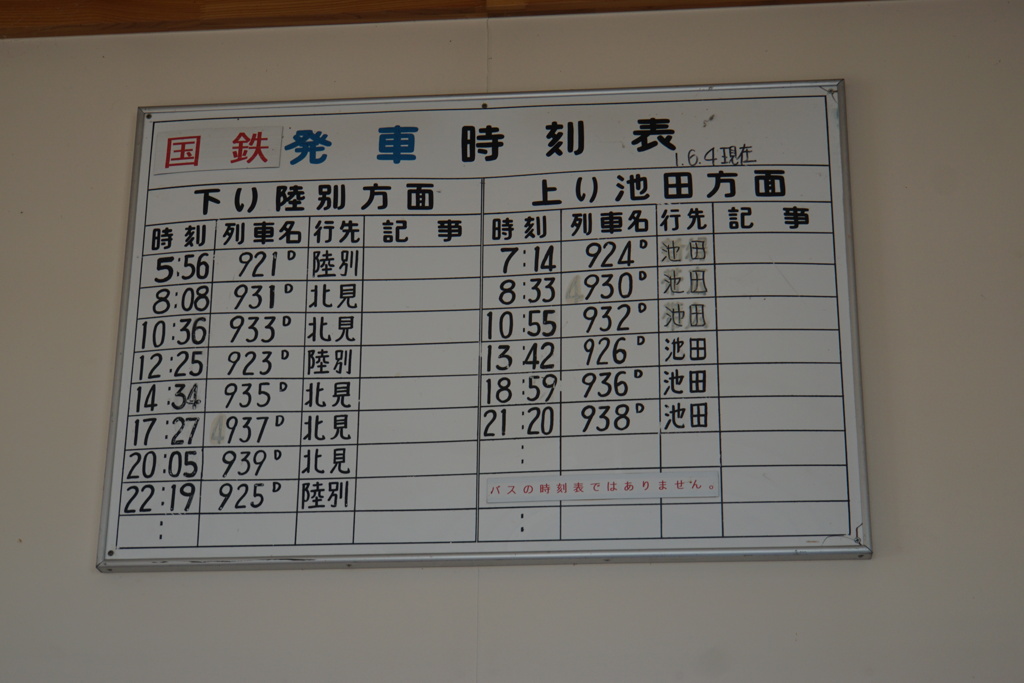 国鉄発車時刻表
1.6.4現在
下り陸別方面
時刻 列車名 行先 記事
5:56 921D 陸別
8:08 931D 北見
10:36 933D 北見
12:25 923D 陸別
14:34 935D 北見
17:27 937D 北見
20:05 939D 北見
22:19 925D 陸別
:
上り池田方面
時刻 列車名 行先 記事
7:14 924D 池田
8:33 930D 池田
10:55 932D 池田
13:42 926D 池田
18:59 936D 池田
21:20 938D 池田
:
バスの時刻表ではありません。
: